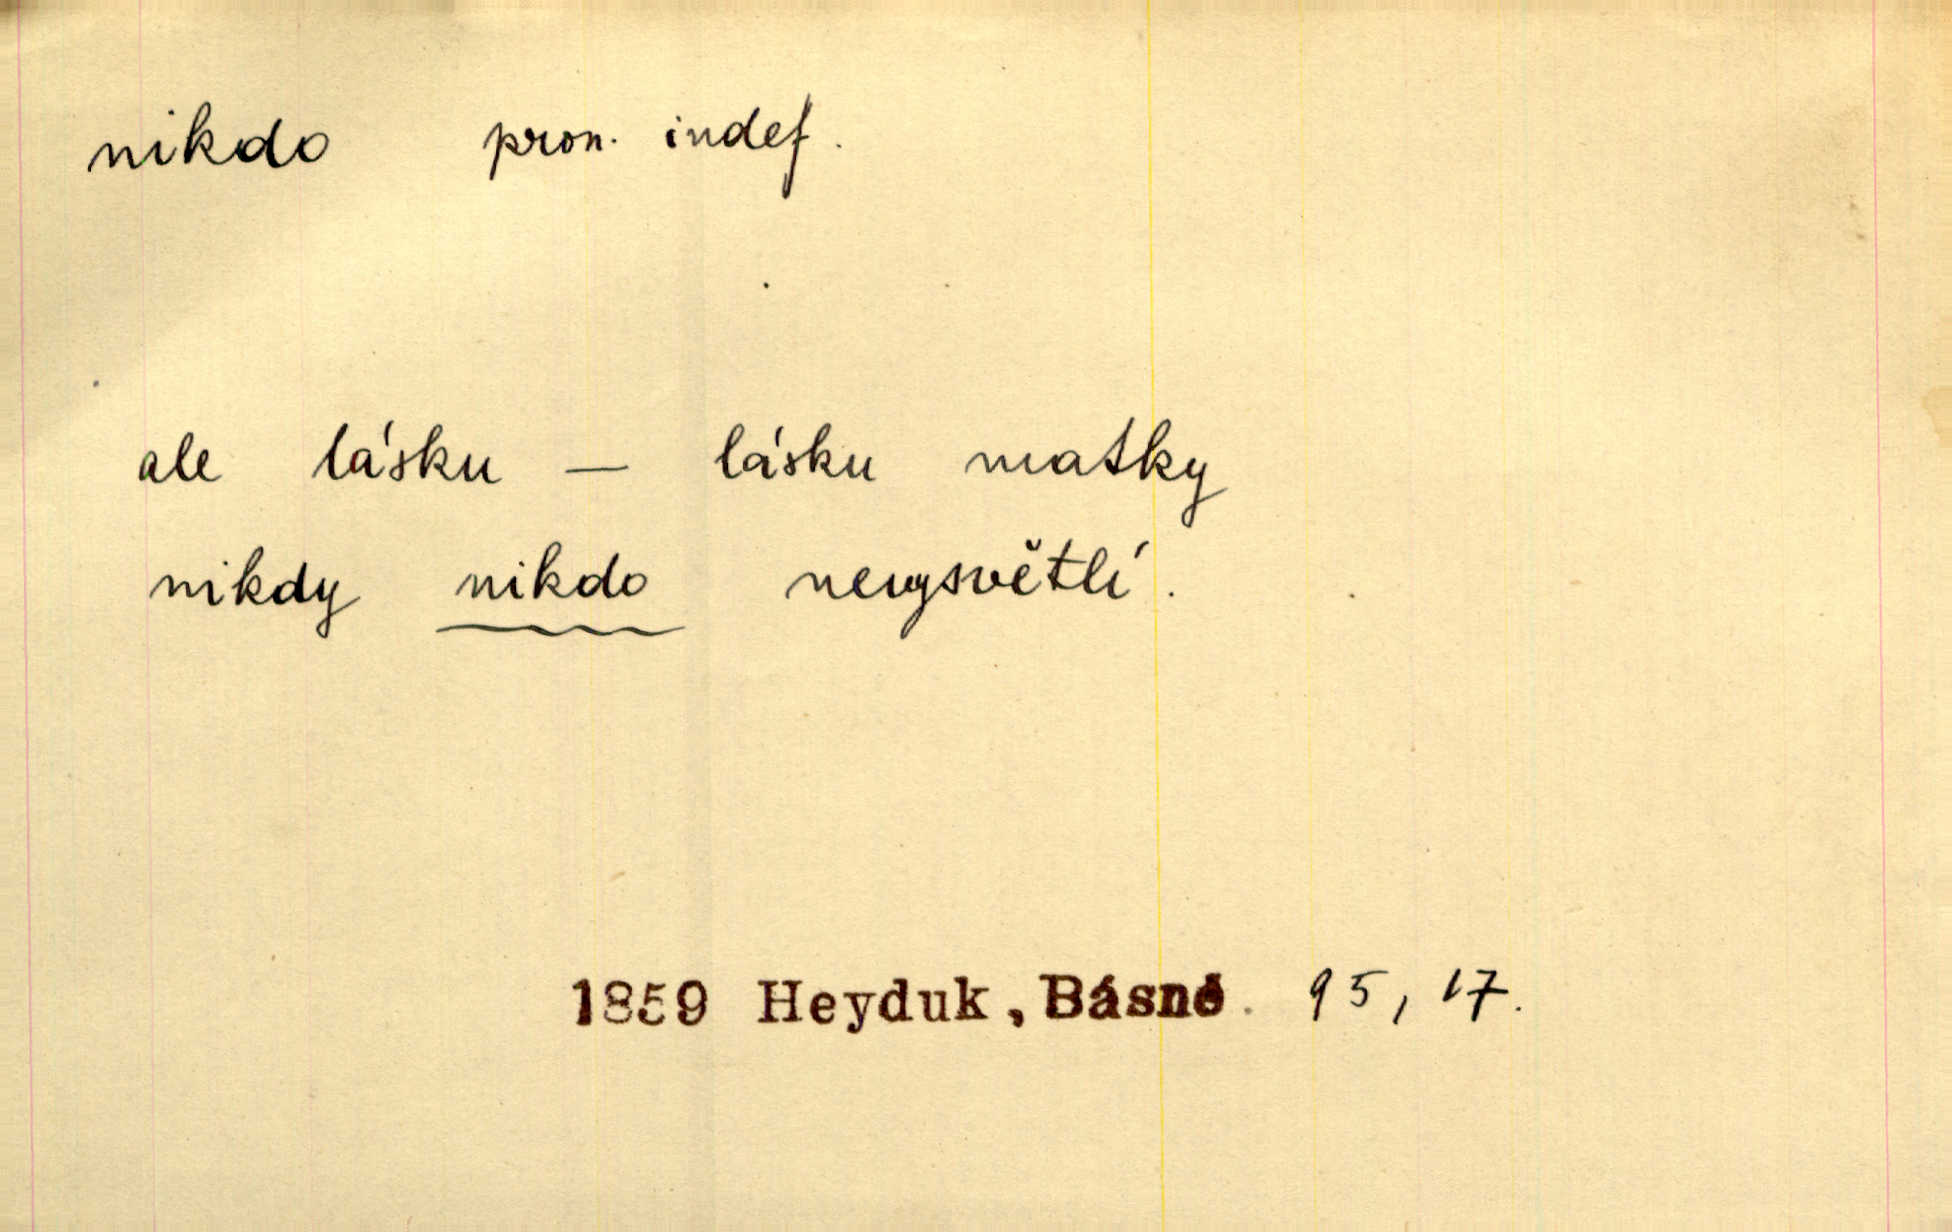 nikdo pron. indef.
ale lásku — lásku matky
nikdy nikdo nevysvětlí.
1859 Heyduk, Básně. 95, 17.